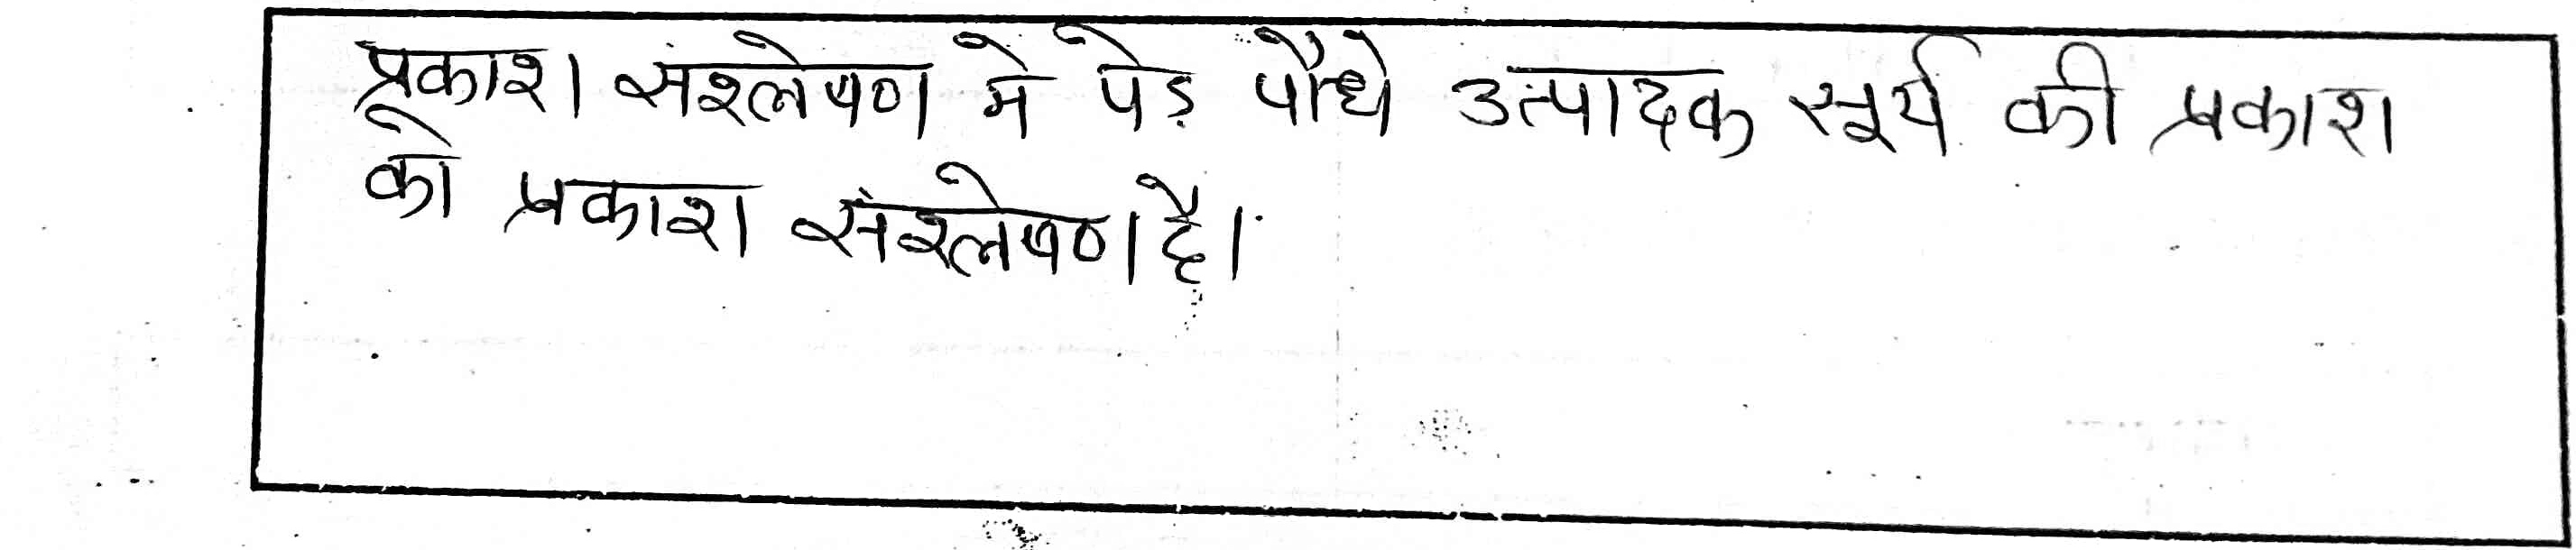 प्रकाश संश्लेषण मे पेड़ पौधे उत्पादक सूर्य की प्रकाश
को प्रकाश संश्लेषण है।